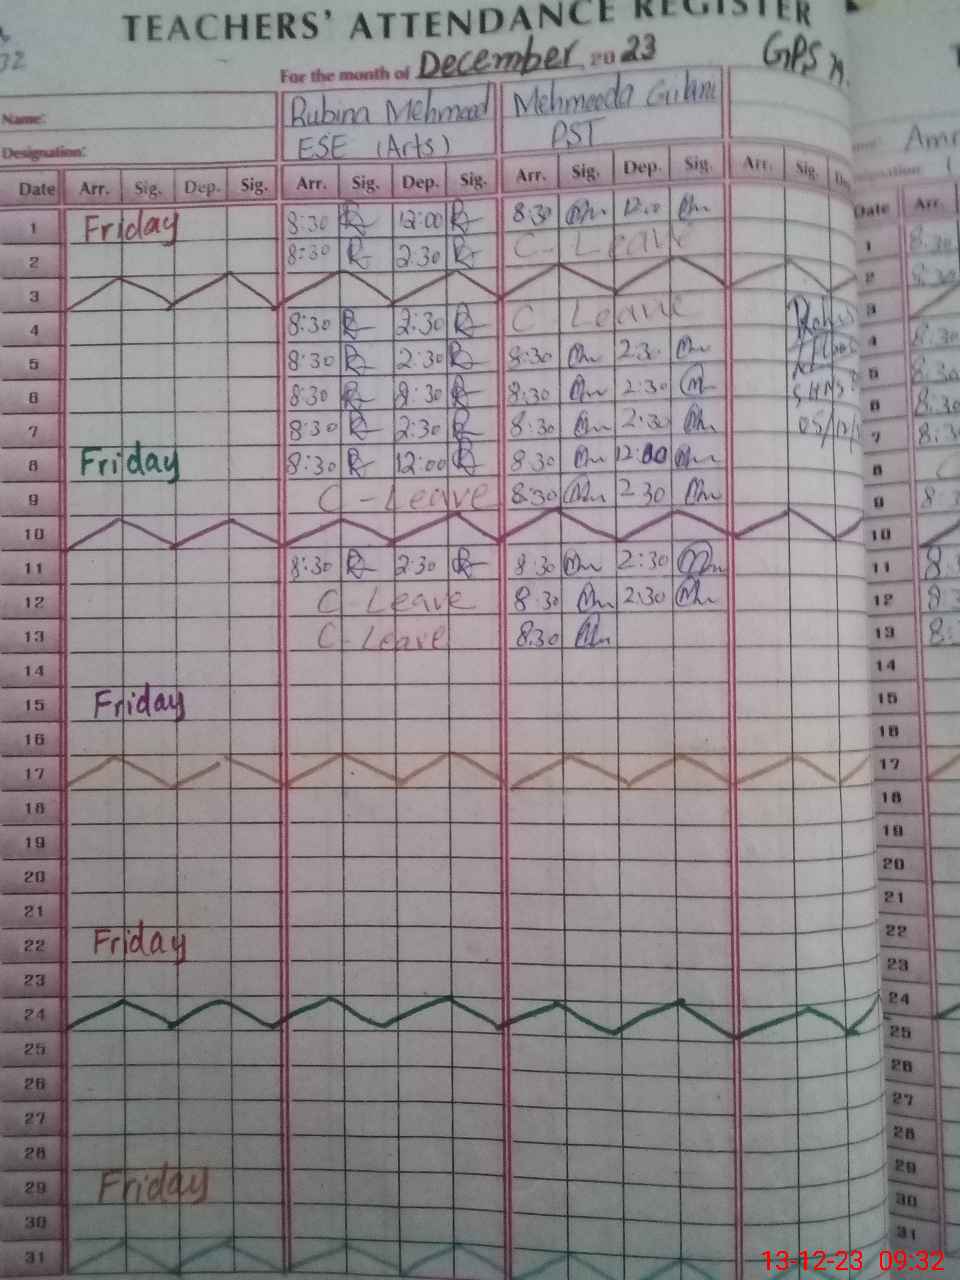 TEACHERS' ATTENDANCE REGISTER
For the month of December 2023
GPS
32
Name: Rubina Mehmood Mehmooda Gilani
Designation: ESE (Arts) PST
Date Arr. Sig. Dep. Sig. Arr. Sig. Dep. Sig. Arr. Sig. Dep. Sig. Arr. Sig. Date Arr.
1 Friday 8:30 12:00 8:30 12:00 1 8:30
2 8:30 2:30 C-Leave 2 8:30
3 3
4 8:30 2:30 C Leave 4 8:30
5 8:30 2:30 8:30 2:30 5 8:30
6 8:30 2:30 8:30 2:30 6 8:30
7 8:30 2:30 8:30 2:30 7
8 Friday 8:30 12:00 8:30 12:00 8
9 C-Leave 8:30 2:30 9
10 10
11 8:30 2:30 8:30 2:30 11
12 C-Leave 8:30 2:30 12
13 C-Leave 8:30 13
14 14
15 Friday 15
16 16
17 17
18 18
19 19
20 20
21 21
22 Friday 22
23 23
24 24
25 25
26 26
27 27
28 28
29 Friday 29
30 30
31 31
13-12-23 09:32